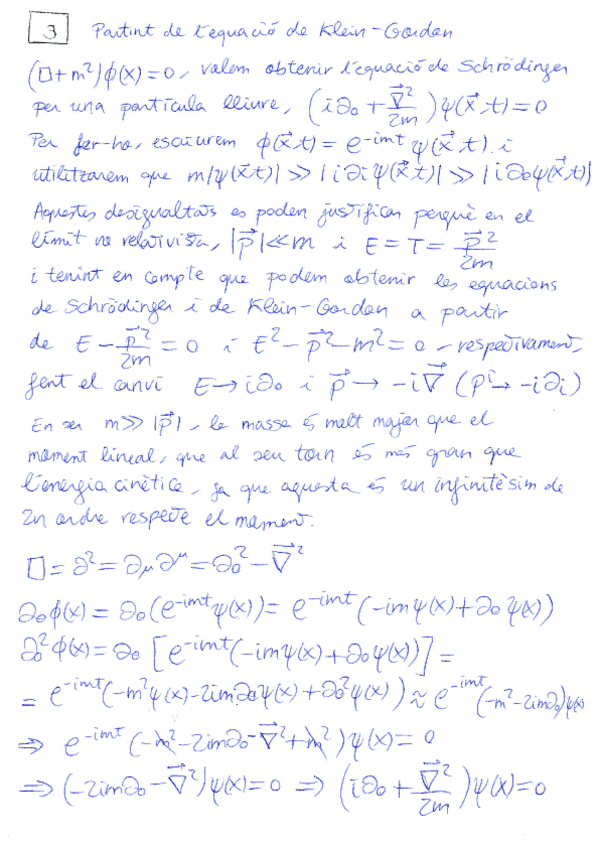 3 Partint de l'equació de Klein-Gordon
(□+m²)ϕ(x)=0, volem obtenir l'equació de Schrödinger
per una partícula lliure, (i∂₀ + ∇⃗²/2m)ψ(x⃗,t)=0
Per fer-ho, escriurem ϕ(x⃗,t) = e^{-imt} ψ(x⃗,t) i
utilitzarem que m|ψ(x⃗,t)| ≫ |i∂iψ(x⃗,t)| ≫ |i∂₀ψ(x⃗,t)|
Aquestes desigualtats es poden justificar perquè en el
límit no relativista, |p⃗|≪m i E=T= p⃗²/2m
i tenint en compte que podem obtenir les equacions
de Schrödinger i de Klein-Gordon a partir
de E - p⃗²/2m = 0 i E²-p⃗²-m²=0, respectivament,
fent el canvi E→i∂₀ i p⃗→ -i∇⃗ (pⁱ→ -i∂i)
En ser m≫|p⃗|, la massa és molt major que el
moment lineal, que al seu torn és més gran que
l'energia cinètica, ja que aquesta és un infinitèsim de
2n ordre respecte el moment.
□=∂²=∂μ∂^μ=∂₀²-∇⃗²
∂₀ϕ(x) = ∂₀(e^{-imt}ψ(x)) = e^{-imt}(-imψ(x)+∂₀ψ(x))
∂₀²ϕ(x) = ∂₀ [e^{-imt}(-imψ(x)+∂₀ψ(x))] =
= e^{-imt}(-m²ψ(x)-2im∂₀ψ(x)+∂₀²ψ(x)) ≈ e^{-imt}(-m²-2im∂₀)ψ(x)
⇒ e^{-imt}(-m²-2im∂₀-∇⃗²+m²)ψ(x)=0
⇒ (-2im∂₀-∇⃗²)ψ(x)=0 ⇒ (i∂₀+∇⃗²/2m)ψ(x)=0